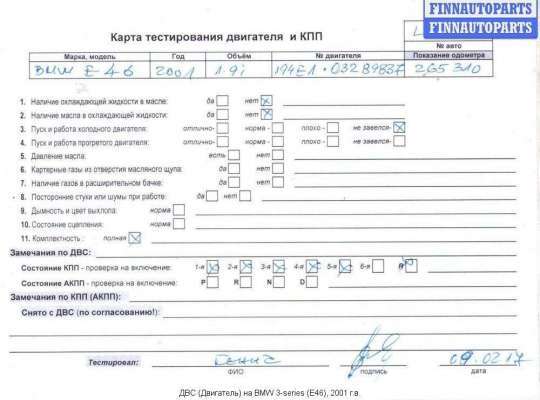 FINNAUTOPARTS
FINNAUTOPARTS
Карта тестирования двигателя и КПП
№ авто
Марка, модель Год Объём № двигателя Показание одометра
BMW E46 2001 1.9i 194E1 · 03289837 265310
1. Наличие охлаждающей жидкости в масле: да нет
2. Наличие масла в охлаждающей жидкости: да нет
3. Пуск и работа холодного двигателя: отлично- норма - плохо - не завелся-
4. Пуск и работа прогретого двигателя: отлично- норма - плохо - не завелся-
5. Давление масла: есть нет
6. Картерные газы из отверстия масляного щупа: да нет
7. Наличие газов в расширительном бачке: да нет
8. Посторонние стуки или шумы при работе: да нет
9. Дымность и цвет выхлопа: норма
10. Состояние сцепления: норма
11. Комплектность : полная
Замечания по ДВС:
Состояние КПП - проверка на включение: 1-я 2-я 3-я 4-я 5-я 6-я R
Состояние АКПП - проверка на включение: P R N D
Замечания по КПП (АКПП):
Снято с ДВС (по согласованию!):
Тестировал: 09.02.17
ФИО подпись дата
ДВС (Двигатель) на BMW 3-series (E46), 2001 г.в.